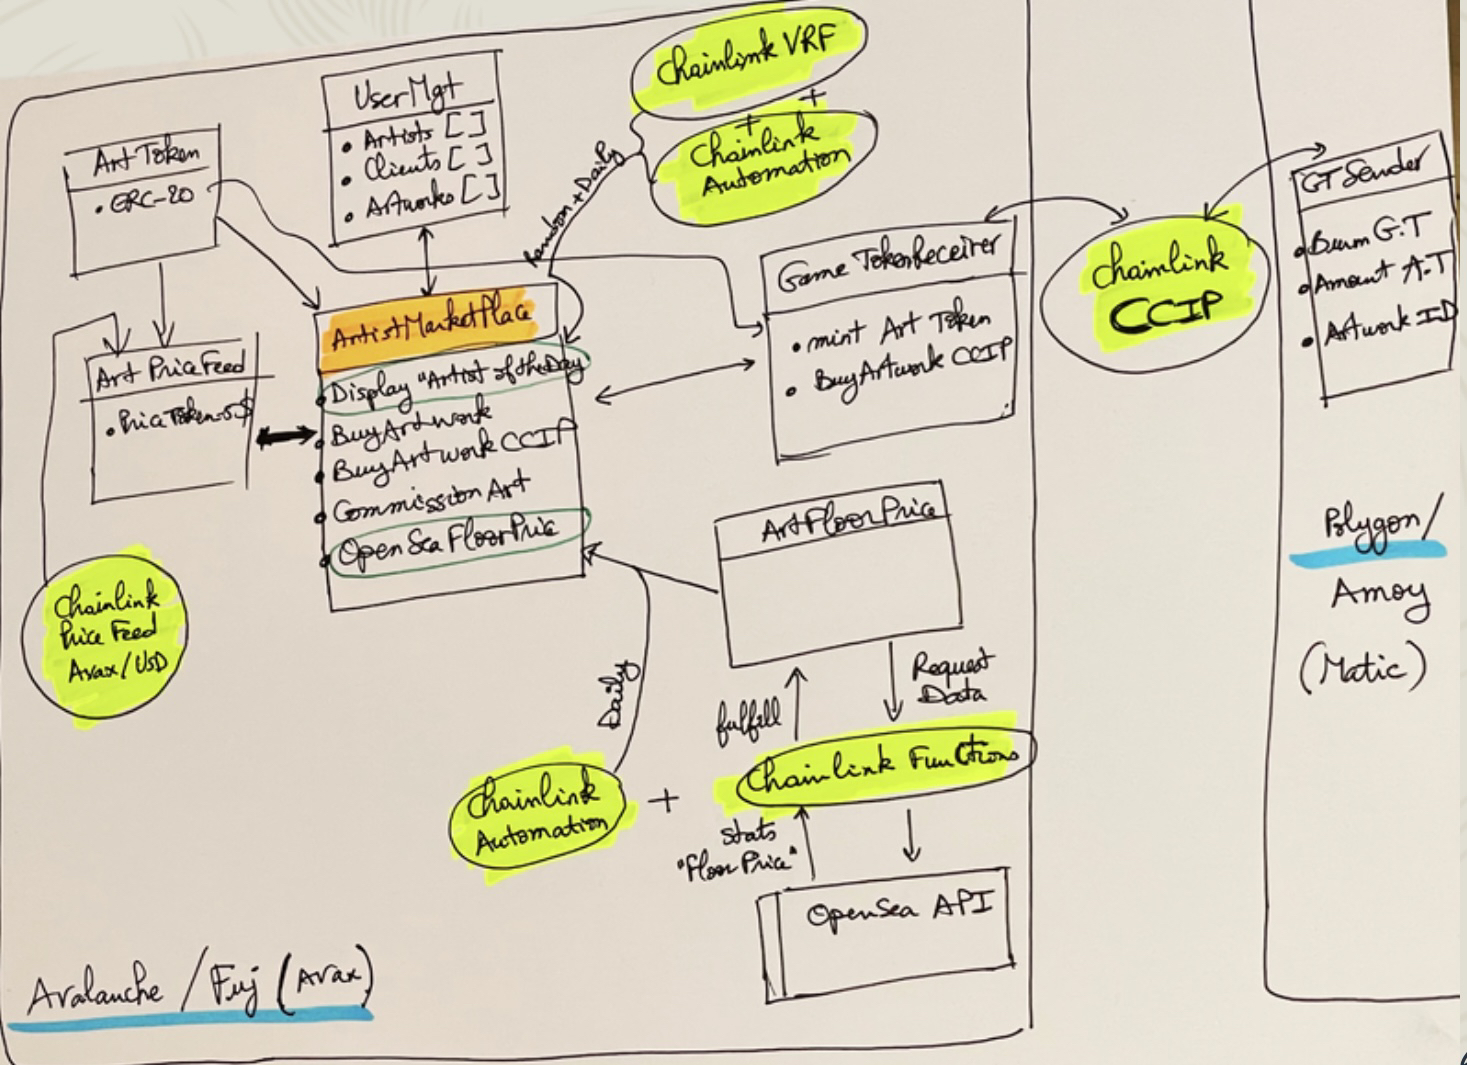 Chainlink VRF
+
+
Chainlink
Automation
Random + Daily
UserMgt
• Artists []
• Clients []
• Artworks []
Art Token
• ERC-20
ArtistMarketPlace
• Display "Artist of the Day
• BuyArtwork
• BuyArtwork CCIP
• Commission Art
• OpenSea FloorPric
Art PriceFeed
• PriceToken
Chainlink
Price Feed
Avax/USD
Game TokenReceiver
• mint Art Token
• BuyArtwork CCIP
Chainlink
CCIP
GTSender
• Burn G.T
• Amount A.T
• Artwork ID
Polygon/
Amoy
(Matic)
ArtFloorPrice
Request
Data
fulfill
Daily
Chainlink
Automation
+
Chainlink Functions
Stats
"Floor Price"
OpenSea API
Avalanche / Fuj (Avax)